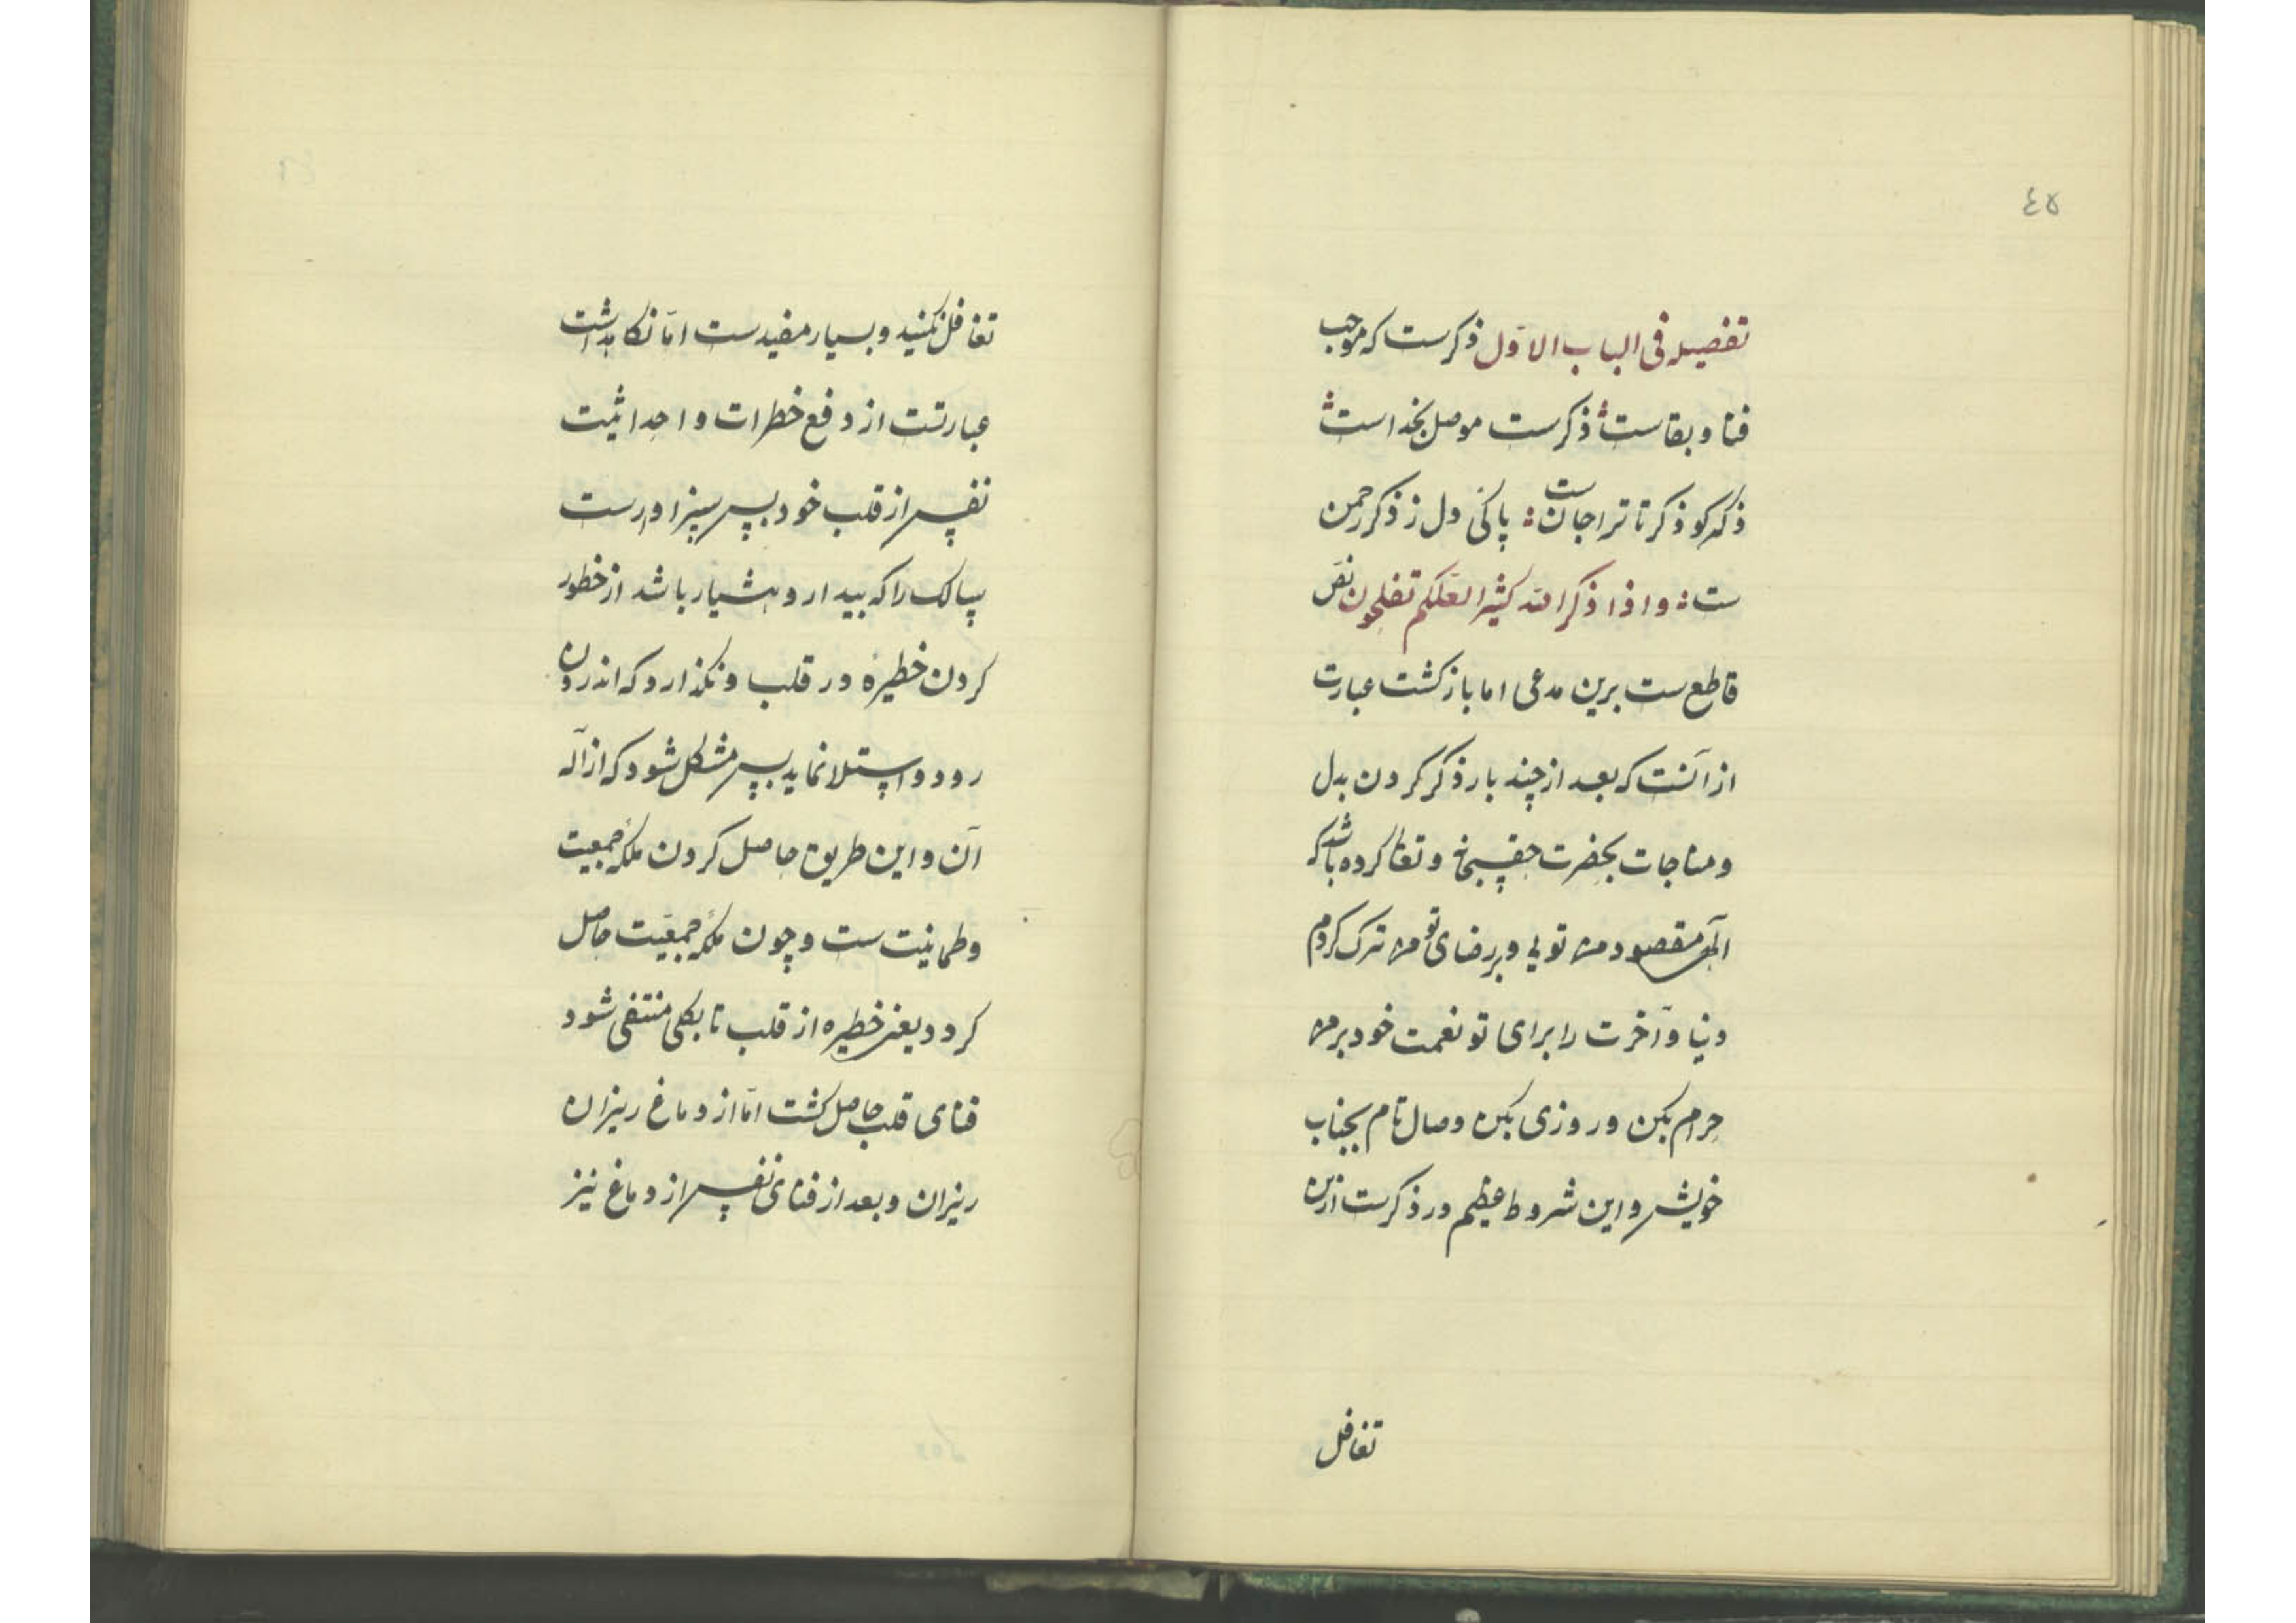 ٤٥
تفصیله فی الباب الاوّل ذکرست که موجب
فنا و بقاست؛ ذکرست موصل بخداست؛
ذکر کو ذکر تا ترا جانست؛ پاکئ دل ز ذکر رحمن
ست؛ و اذا ذکر الله کثیرا لعلکم تفلحون نصّ
قاطع ست برین مدعی اما باز کشت عبارت
از آنست که بعد از چند بار ذکر کردن بدل
و مناجات بحضرت حق سبحانه و تعالی کرده باشد که
الهی مقصود من تویی و برضای تو من ترک کردم
دنیا و آخرت را برای تو نعمت خود بر من
حرام بکن و روزی بکن وصال تام بجناب
خویش و این شروط عظیم در ذکرست ازین
تغافل
تغافل نکنید و بسیار مفیدست امّا نکاهداشت
عبارتست از دفع خطرات و احداثیت
نفس از قلب خود پس سزاورست
سالک را که بیدار و هشیار باشد از خطور
کردن خطیره در قلب و نکذارد که اندرون
رود و استلا نماید پس مشکل شود که ازاله
آن و این طریق حاصل کردن ملکهٔ جمعیت
و طمانیت ست و چون ملکهٔ جمعیّت حاصل
کردد یعنی خطیره از قلب تا بکلی منتفی شود
فنای قلب حاصل کشت امّا از دماغ ریزان
ریزان و بعد از فنای نفس از دماغ نیز